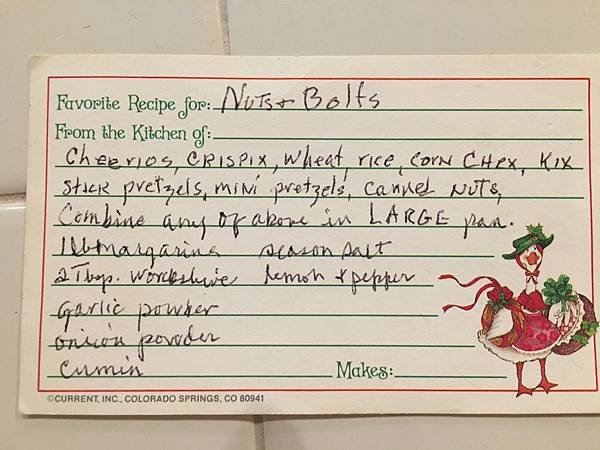 Favorite Recipe for: Nuts + Bolts
From the Kitchen of:
Cheerios, Crispix, wheat, rice, corn Chex, Kix
stick pretzels, mini pretzels, canned nuts,
Combine any of above in LARGE pan.
1 lb margarine season salt
2 Tbsp. Worcheshire lemon + pepper
garlic powder
onion powder
cumin Makes:
©CURRENT, INC., COLORADO SPRINGS, CO 80941